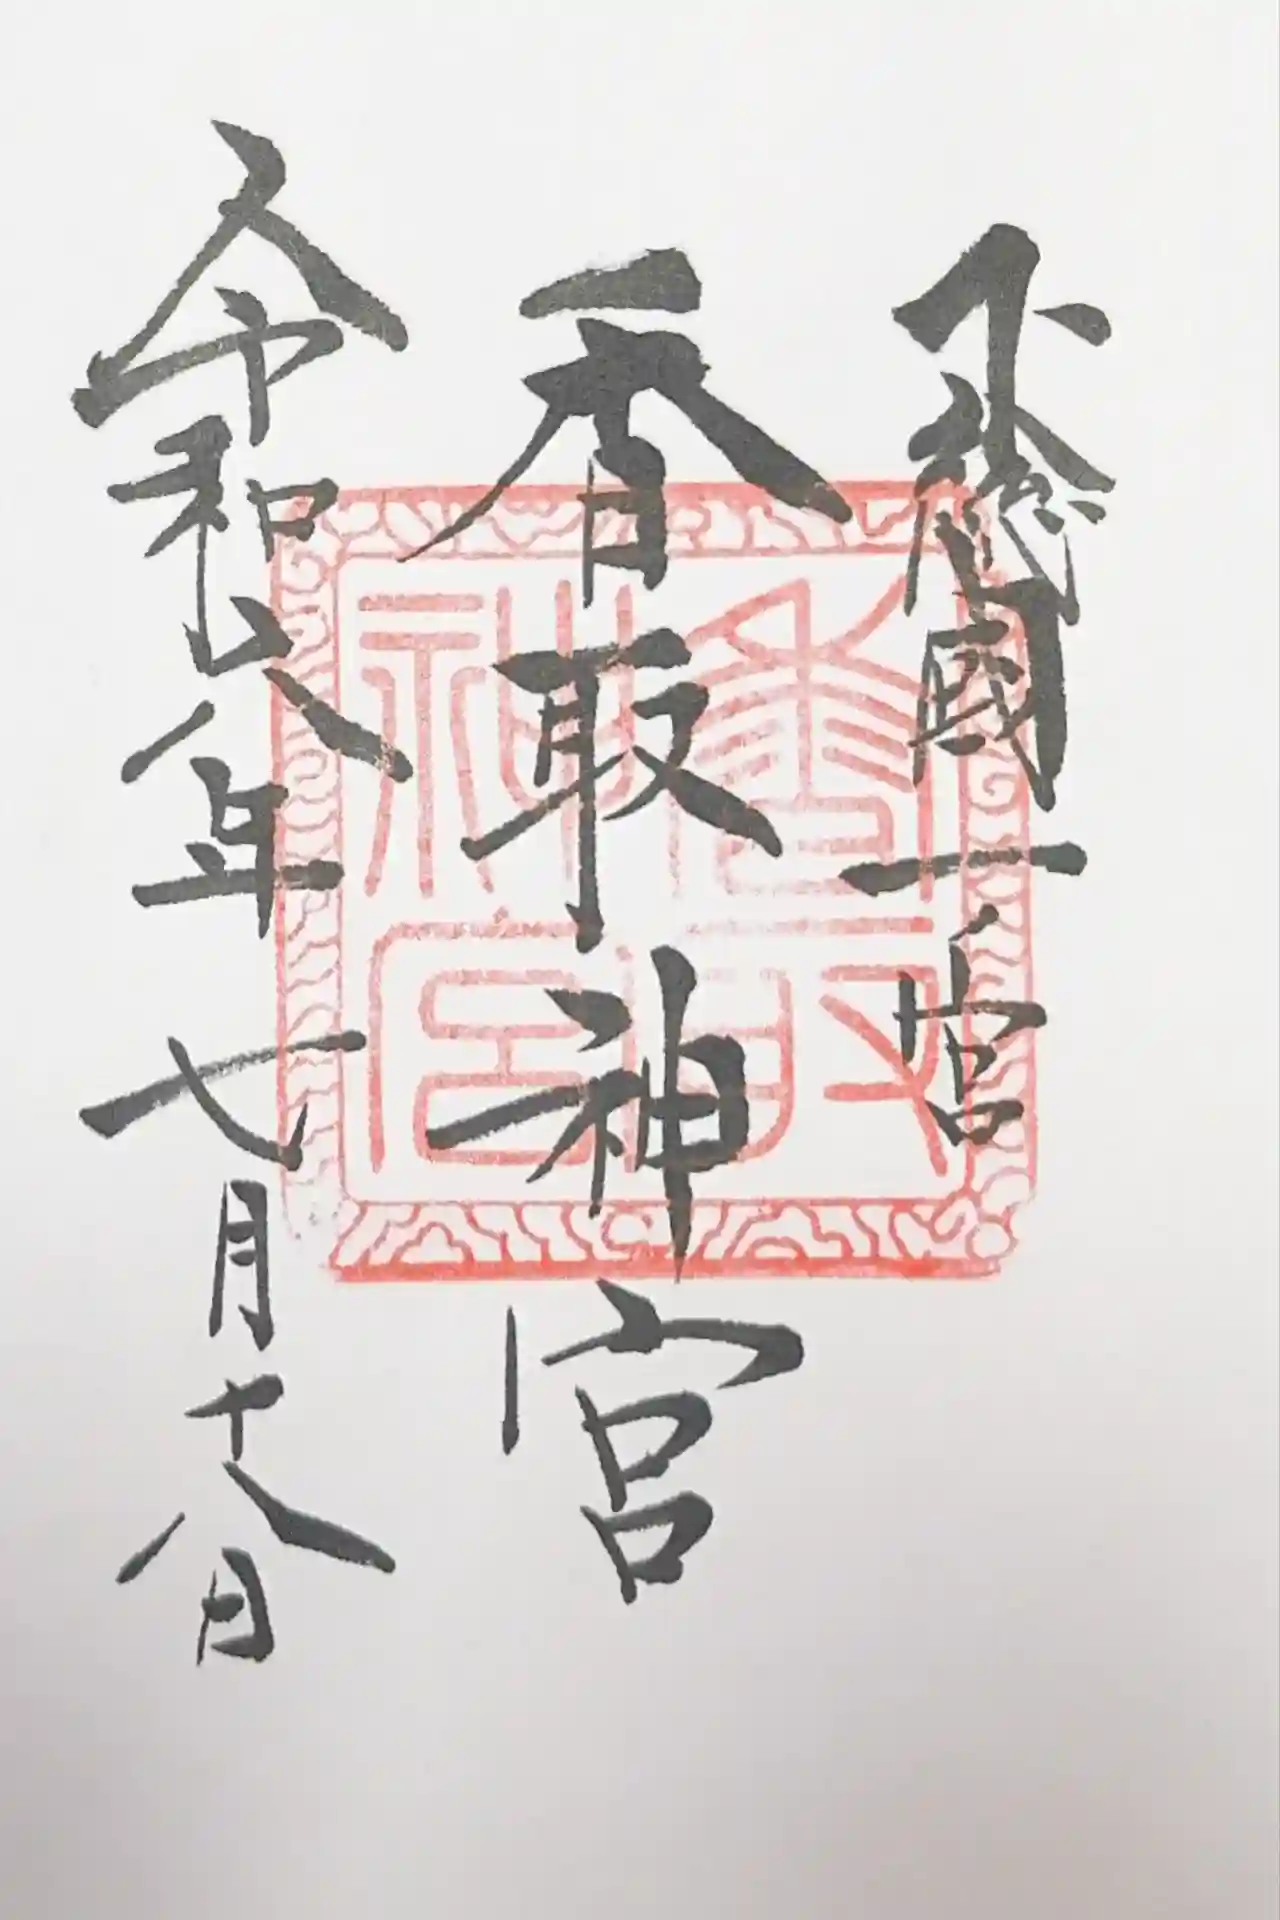 下総國一ノ宮
香取神宮
令和六年七月十八日
香取神宮